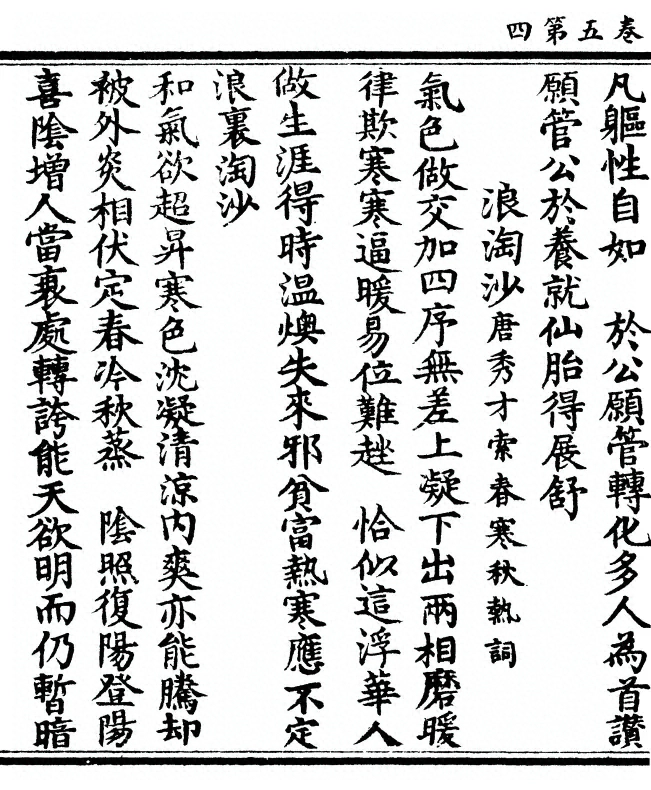 卷五第四
凡軀性自如　於公願管轉化多人為首讚
願管公於養就仙胎得展舒
浪淘沙唐秀才索春寒秋熱詞
氣色做交加四序無差上凝下出兩相磨暖
律欺寒寒逼暖易位難趖　恰似這浮華人
做生涯得時温燠失來邪貧富熱寒應不定
浪裏淘沙
和氣欲超昇寒色沈凝清涼內爽亦能騰却
被外炎相伏定春冷秋蒸　陰照復陽登陽
喜陰增人當衷處轉誇能天欲明而仍暫暗